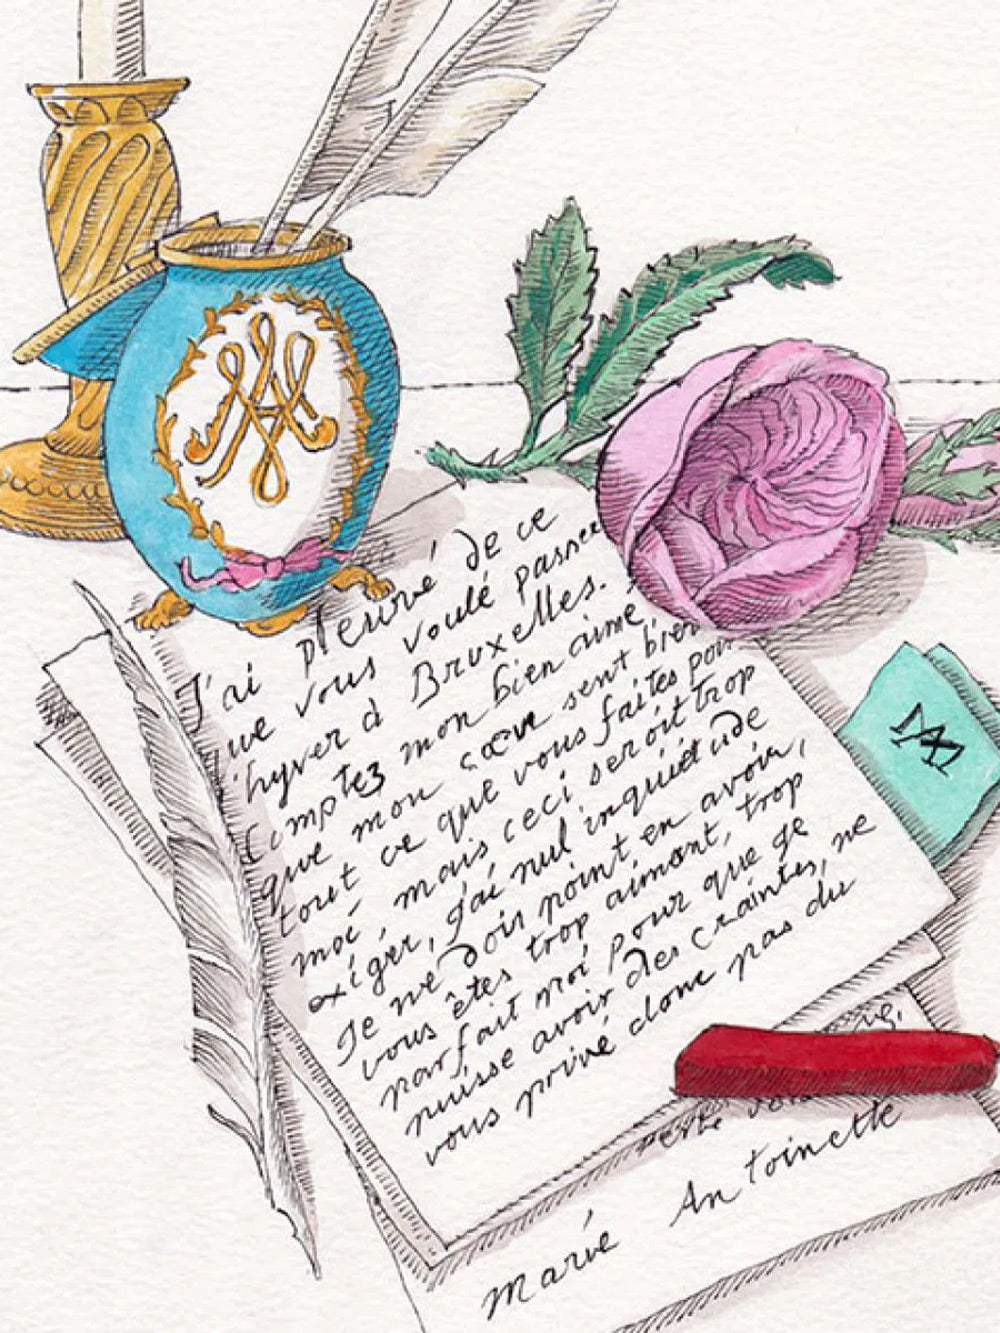 J'ai pleuré de ce
que vous voulé passer
l'hyver à Bruxelles.
Comptez mon bien aimé
que mon cœur sent bien
tout ce que vous faites pour
moi, mais ceci seroit trop
exiger, j'ai nul inquiétude
Je ne dois point en avoir,
vous êtes trop aimant, trop
parfait moi pour que je
puisse avoir des craintes, ne
vous privé donc pas du
Marie Antoinette
MA
MA